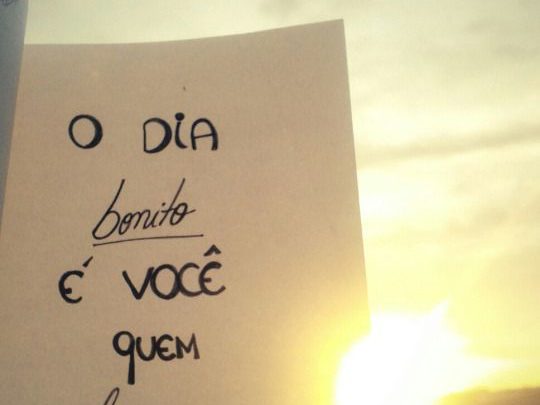 O DiA
bonito
É VOCÊ
QUEM